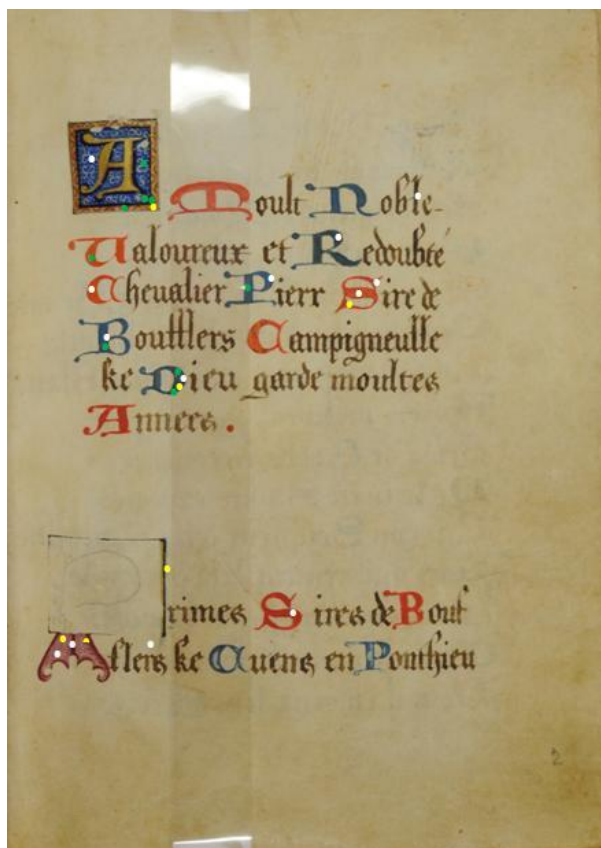 A Moult Noble
Valoureux et Redoubte
Chevalier Pierr Sire de
Boufflers Campigneulle
ke Dieu garde moultes
Annees.
rimes Sires de Bouf
Aflers ke Cuens en Ponthieu
2